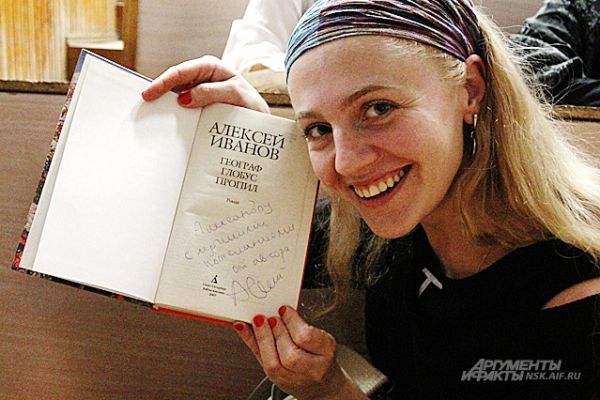 АЛЕКСЕЙ
ИВАНОВ
ГЕОГРАФ
ГЛОБУС
ПРОПИЛ
Роман
Александру
с лучшими
пожеланиями
от автора
Санкт-Петербург
АРГУМЕНТЫ
И ФАКТЫ NSK.AIF.RU